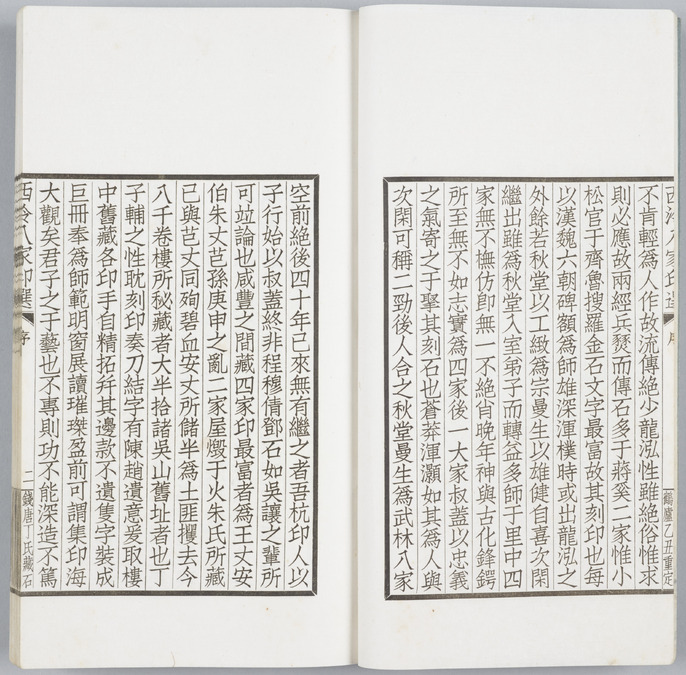 西泠八家印選 序 鶴廬乙丑重定
不肯輕爲人作故流傳絶少龍泓性雖絶俗惟求
則必應故兩經兵燹而傳石多于蔣奚二家惟小
松官于齊魯搜羅金石文字最富故其刻印也每
以漢魏六朝碑額爲師雄深渾樸時或出龍泓之
外餘若秋堂以工緻爲宗曼生以雄健自喜次閑
繼出雖爲秋堂入室弟子而轉益多師于里中四
家無不橅仿卽無一不絶肖晚年神與古化鋒鍔
所至無不如志實爲四家後一大家叔蓋以忠義
之氣寄之于掔其刻石也蒼莽渾灝如其爲人與
次閑可稱二勁後人合之秋堂曼生爲武林八家
空前絶後四十年已來無有繼之者吾杭印人以
子行始以叔蓋終非程穆倩鄧石如吳讓之輩所
可竝論也咸豐之閒藏四家印最富者爲王丈安
伯朱丈芑孫庚申之亂二家屋燬于火朱氏所藏
已與芑丈同殉碧血安丈所儲半爲土匪攫去今
八千卷樓所秘藏者大半拾諸吳山舊址者也丁
子輔之性耽刻印奏刀結字有陳趙遺意爰取樓
中舊藏各印手自精拓幷其邊款不遺隻字裝成
巨冊奉爲師範明窗展讀璀璨盈前可謂集印海
大觀矣君子之于藝也不專則功不能深造不篤
西泠八家印選 序 二 錢唐丁氏藏石